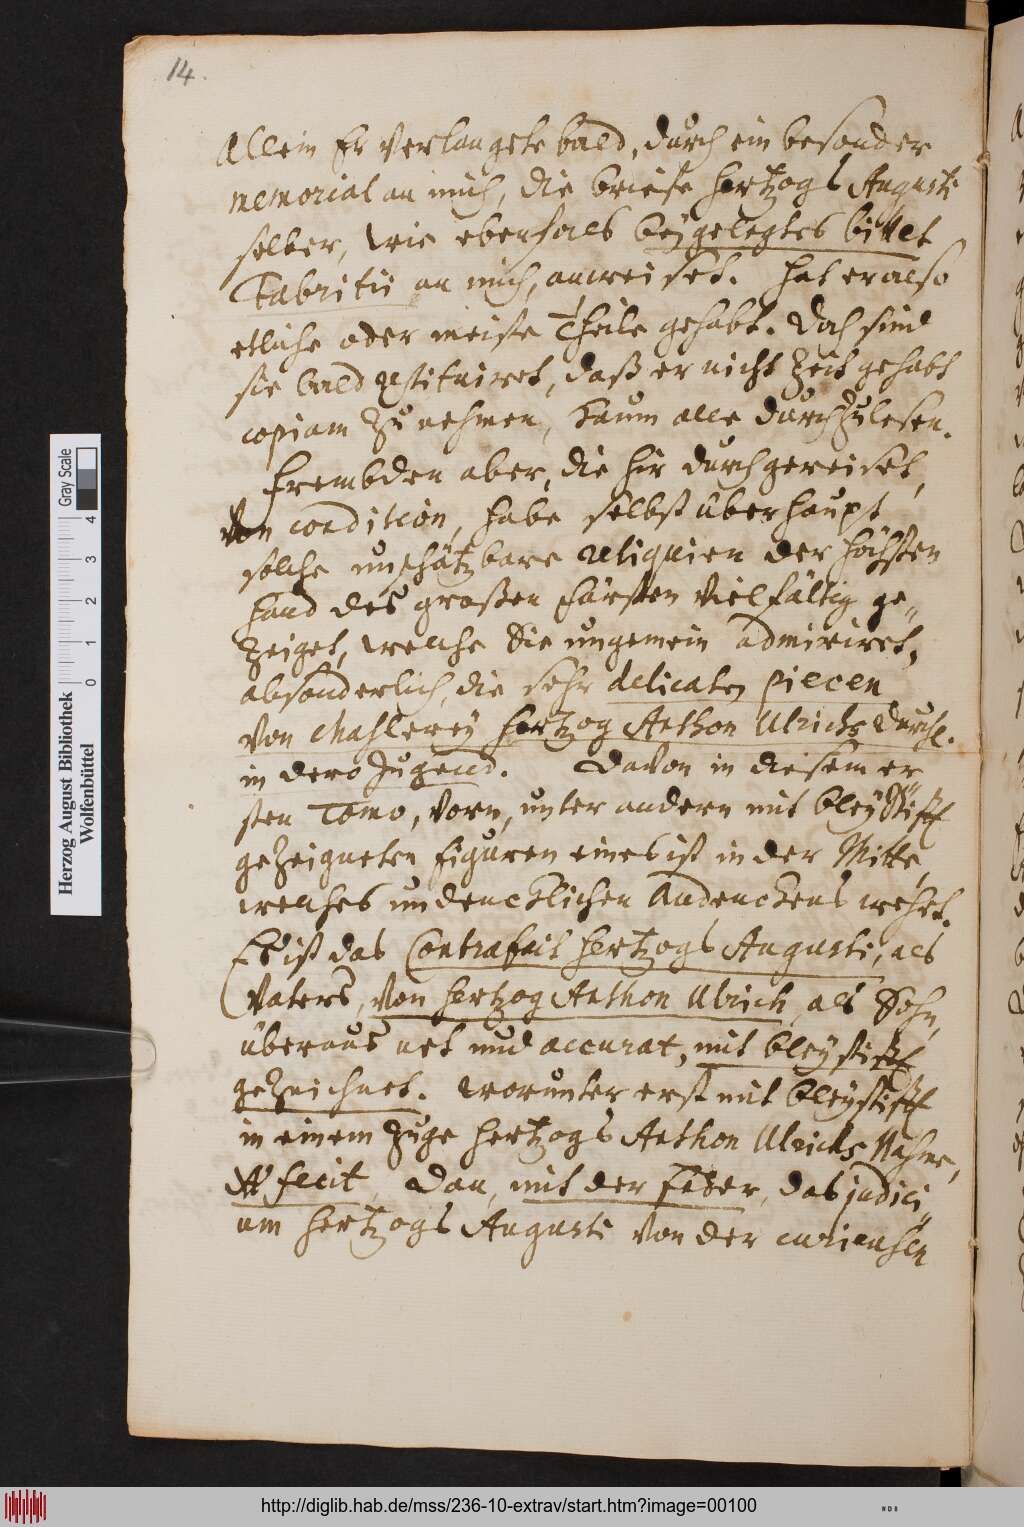 14.
Allein Er verlangete bald, durch ein besonder
memorial an mich, die briefe Hertzogs Augusti
selber, wie ebenfals beÿgelegtes billet
Fabritii an mich, anweiset. Hat er also
etliche oder meiste Theile gehabt. Doch sind
sie bald restituiret, daß er nicht Zeit gehabt
copiam zu nehmen, kaum alle durchzulesen.
Frembden aber, die hir durchgereiset,
von condition, habe selbst überhaupt
solche unschätzbare reliquien der höchsten
Hand des großen Fürsten vielfältig ge„
zeiget, welche Sie ungemein admiriret,
absonderlich, die sehr delicaten piecen
von Mahlereÿ Hertzog Anthon Ulrichs Durchl.
in dero Jugend. Davon in diesem er„
sten Tomo, vorn, unter andern mit bleÿstifft
gezeigneten figuren eines ist in der Mitte,
welches undencklichen Andenckens wehrt.
Es ist das Contrafait Hertzogs Augusti, als
Vaters, von Hertzog Anthon Ulrich, als Sohn,
überaus net und accurat, mit bleÿstifft
gezeichnet. Worunter erst mit bleÿstifft
in einem Zuge Hertzogs Anthon Ulrichs Nahme,
fecit, Dan, mit der Feder, das judici„
um Hertzogs Augusti von der curieusen
Herzog August Bibliothek
Wolfenbüttel
Gray Scale
0 1 2 3 4
http://diglib.hab.de/mss/236-10-extrav/start.htm?image=00100